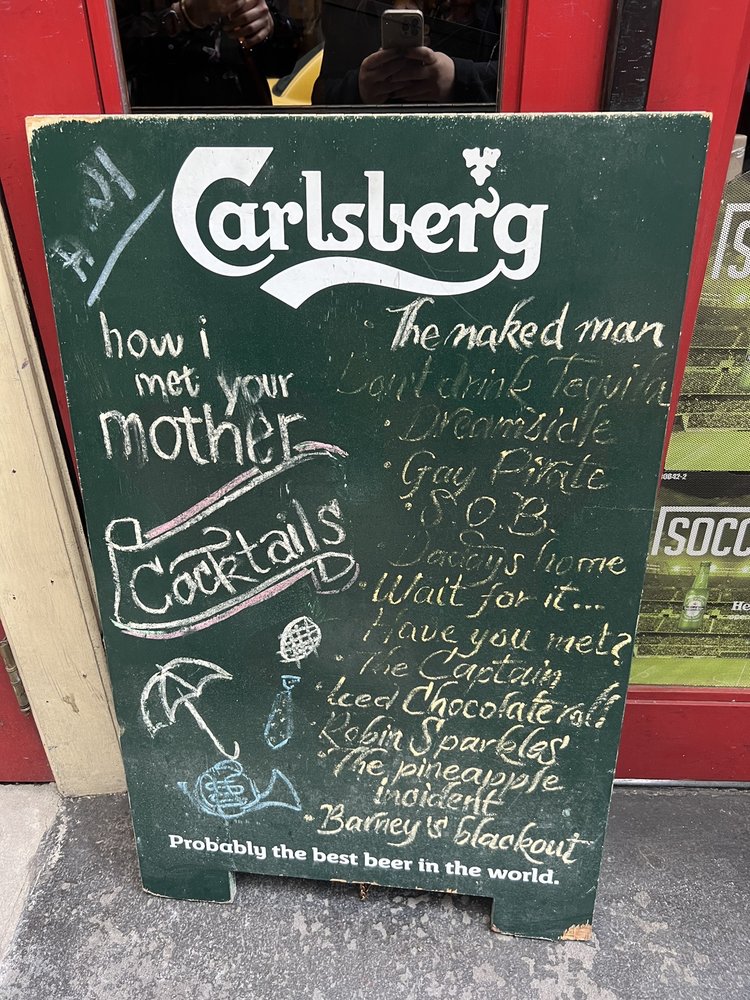 Carlsberg
how i
met your
mother
Cocktails
The naked man
Don't drink Tequila
Dreamsicle
Gay Pirate
S.O.B.
Daddy's home
Wait for it...
Have you met?
The Captain
Iced Chocolate roll
Robin Sparkles
The pineapple
incident
Barney's blackout
Probably the best beer in the world.
SOCC
He